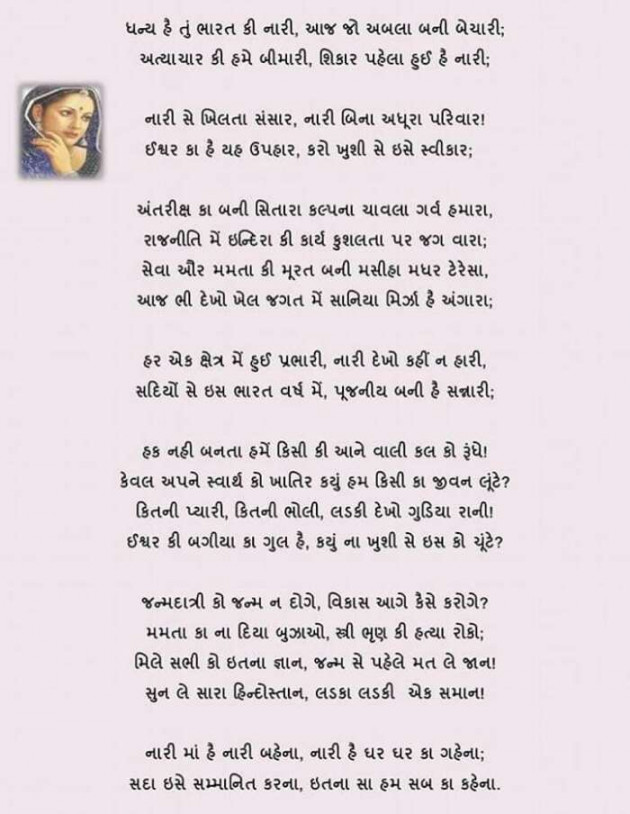 ધન્ય હૈ તું ભારત કી નારી, આજ જો અબલા બની બેચારી;
અત્યાચાર કી હમે બીમારી, શિકાર પહેલા હુઈ હૈ નારી;
નારી સે ખિલતા સંસાર, નારી બિના અધૂરા પરિવાર!
ઈશ્વર કા હૈ યહ ઉપહાર, કરો ખુશી સે ઇસે સ્વીકાર;
અંતરીક્ષ કા બની સિતારા કલ્પના ચાવલા ગર્વ હમારા,
રાજનીતિ મેં ઇન્દિરા કી કાર્ય કુશલતા પર જગ વારા;
સેવા ઔર મમતા કી મૂરત બની મસીહા મધર ટેરેસા,
આજ ભી દેખો ખેલ જગત મેં સાનિયા મિર્ઝા હૈ અંગારા;
હર એક ક્ષેત્ર મેં હુઈ પ્રભારી, નારી દેખો કહીં ન હારી,
સદિયોં સે ઇસ ભારત વર્ષ મેં, પૂજનીય બની હૈ સન્નારી;
હક નહી બનતા હમેં કિસી કી આને વાલી કલ કો રૂંધે!
કેવલ અપને સ્વાર્થ કો ખાતિર કયું હમ કિસી કા જીવન લૂંટે?
કિતની પ્યારી, કિતની ભોલી, લડકી દેખો ગુડિયા રાની!
ઈશ્વર કી બગીયા કા ગુલ હૈ, કયું ના ખુશી સે ઇસ કો ચૂંટે?
જન્મદાત્રી કો જન્મ ન દોગે, વિકાસ આગે કૈસે કરોગે?
મમતા કા ના દિયા બુઝાઓ, સ્ત્રી ભૃણ કી હત્યા રોકો;
મિલે સભી કો ઇતના જ્ઞાન, જન્મ સે પહેલે મત લે જાન!
સુન લે સારા હિન્દોસ્તાન, લડકા લડકી એક સમાન!
નારી માં હૈ નારી બહેના, નારી હૈ ઘર ઘર કા ગહેના;
સદા ઇસે સમ્માનિત કરના, ઇતના સા હમ સબ કા કહેના.